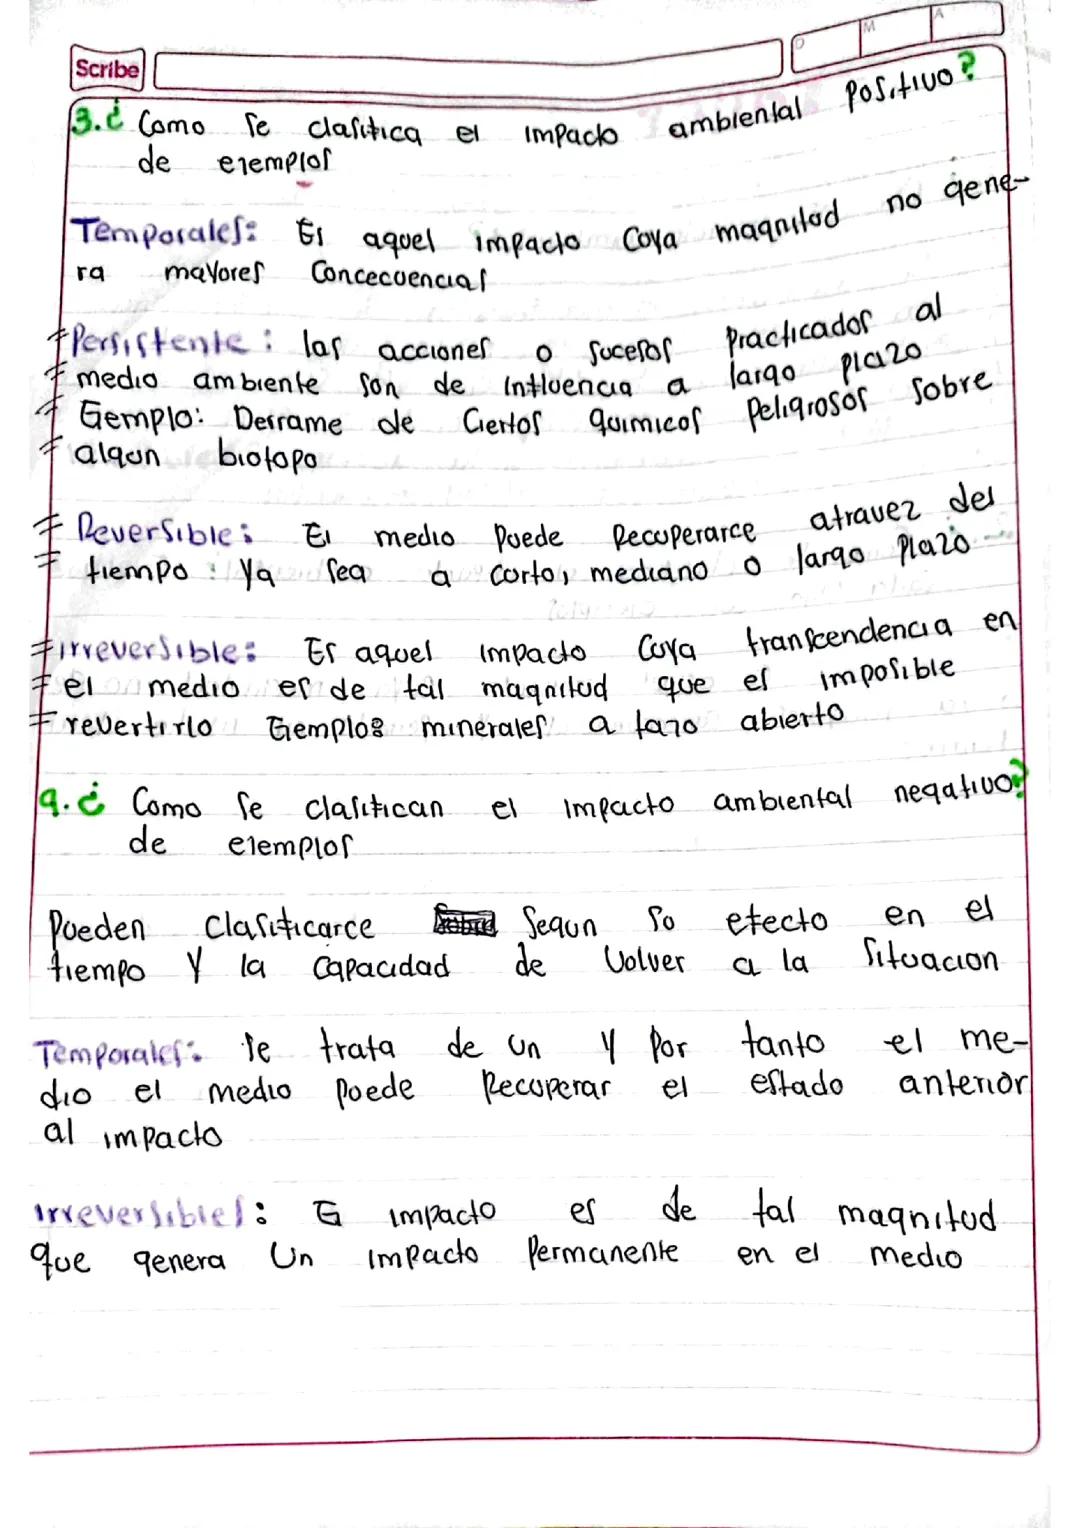 Scribe
D M A
3. ¿ Como se clasifica el impacto ambiental positivo?
de ejemplos
Temporales: Es aquel impacto Coya magnitod no gene-
ra mayores Concecuencias
Persistente: las acciones o sucesos practicados al
medio ambiente son de influencia a largo plazo
Ejemplo: Derrame de Ciertos quimicos peligrosos sobre
algun biotopo
Reversible: El medio puede Recuperarce atravez del
tiempo: ya sea a corto, mediano o largo plazo
irreversible: Es aquel impacto Coya transcendencia en
el medio es de tal magnitud que es imposible
revertirlo Ejemplo: minerales a tajo abierto
4. ¿ Como se clasifican el impacto ambiental negativo?
de ejemplos
Pueden Clasificarce Segun so efecto en el
tiempo y la capacidad de Volver a la situacion
Temporales: se trata de un y por tanto el me-
dio el medio puede Recuperar el estado anterior
al impacto
irreversibles: El impacto es de tal magnitud
que genera Un impacto permanente en el medio